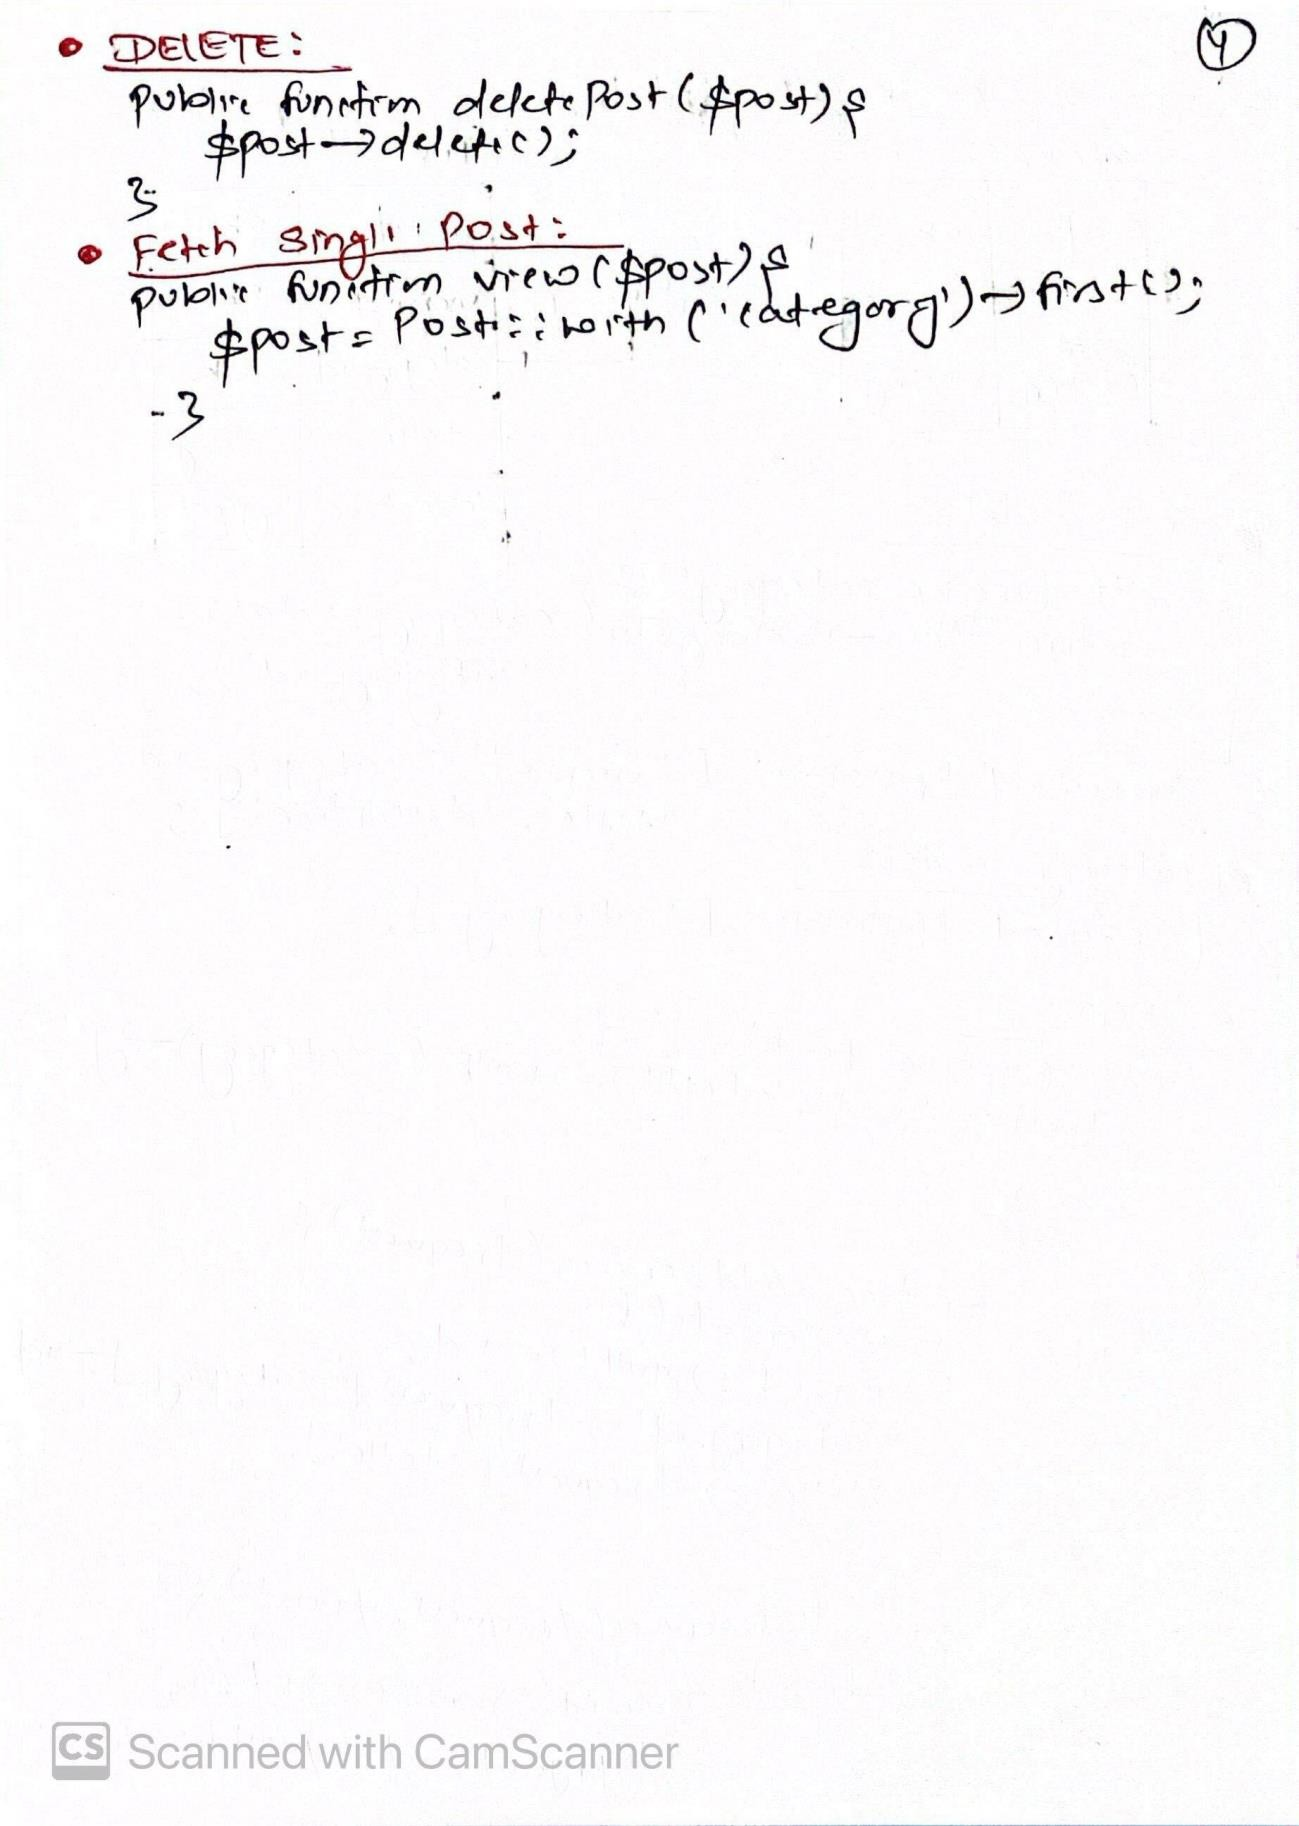 • DELETE:
④
public function deletePost($post){
$post→delete();
}
• Fetch single post:
public function view($post){
$post = Post::with('category')→first();
}
CS Scanned with CamScanner